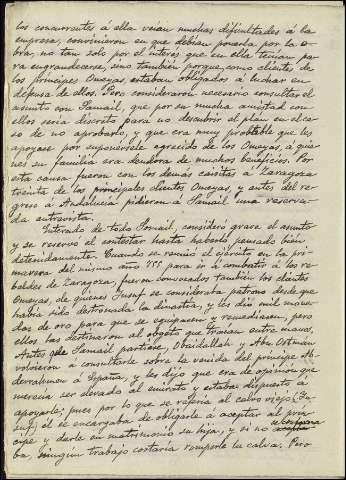 los concurrentes a ella veian muchas dificultades á la
empresa, convinieron en que debian ponerla por la o-
bra, no tan solo por el interés que en ella tenian pa-
ra engrandecerse, sino tambien porque, como clientes de
los principes Omeyas, estaban obligados á luchar en
defensa de ellos. Pero consideraron necesario consultar el
asunto con Ismail, que por su mucha amistad con
ellos seria discreto para no descubrir el plan en el ca-
so de no aprobarlo, y que era muy probable que les
apoyase por suponersele agradecido de los Omeyas, á quie-
nes su familia era deudora de muchos beneficios. Por
esta causa fueron con los demás caisitas á Zaragoza
treinta de los principales clientes Omeyas, y antes del re-
greso á Andalucia pidieron á Samail una reserva-
da entrevista.
Enterado de todo Ismail, consideró grave el asunto
y se reservó el contestar hasta haberlo pensado bien
detenidamente. Cuando se reunió el ejército en la pri-
mavera del mismo año 755 para ir á combatir á los re-
beldes de Zaragoza, fueron convocados tambien los clientes
Omeyas, de quienes Jusuf se consideraba patrono desde que
habia sido destronada la dinastia, y les dió mil mone-
das de oro para que se equipasen y remediasen, pero
ellos las destinaron al objeto que traian entre manos.
Antes que Samail partiese, Obaidallah y Abu Ostman
volvieron a consultarle sobre la venida del principe Ab-
derrahmen á España, y les dijo que era de opinion que
merecia ser elevado al emirato y estaba dispuesto á
apoyarle; pues por lo que se referia al calvo viejo (Ju-
suf) el se encargaba de obligarle á aceptar al prin-
cipe y darle en matrimonio su hija, y si no
ba, ningun trabajo costaria romperle la calva. Pero